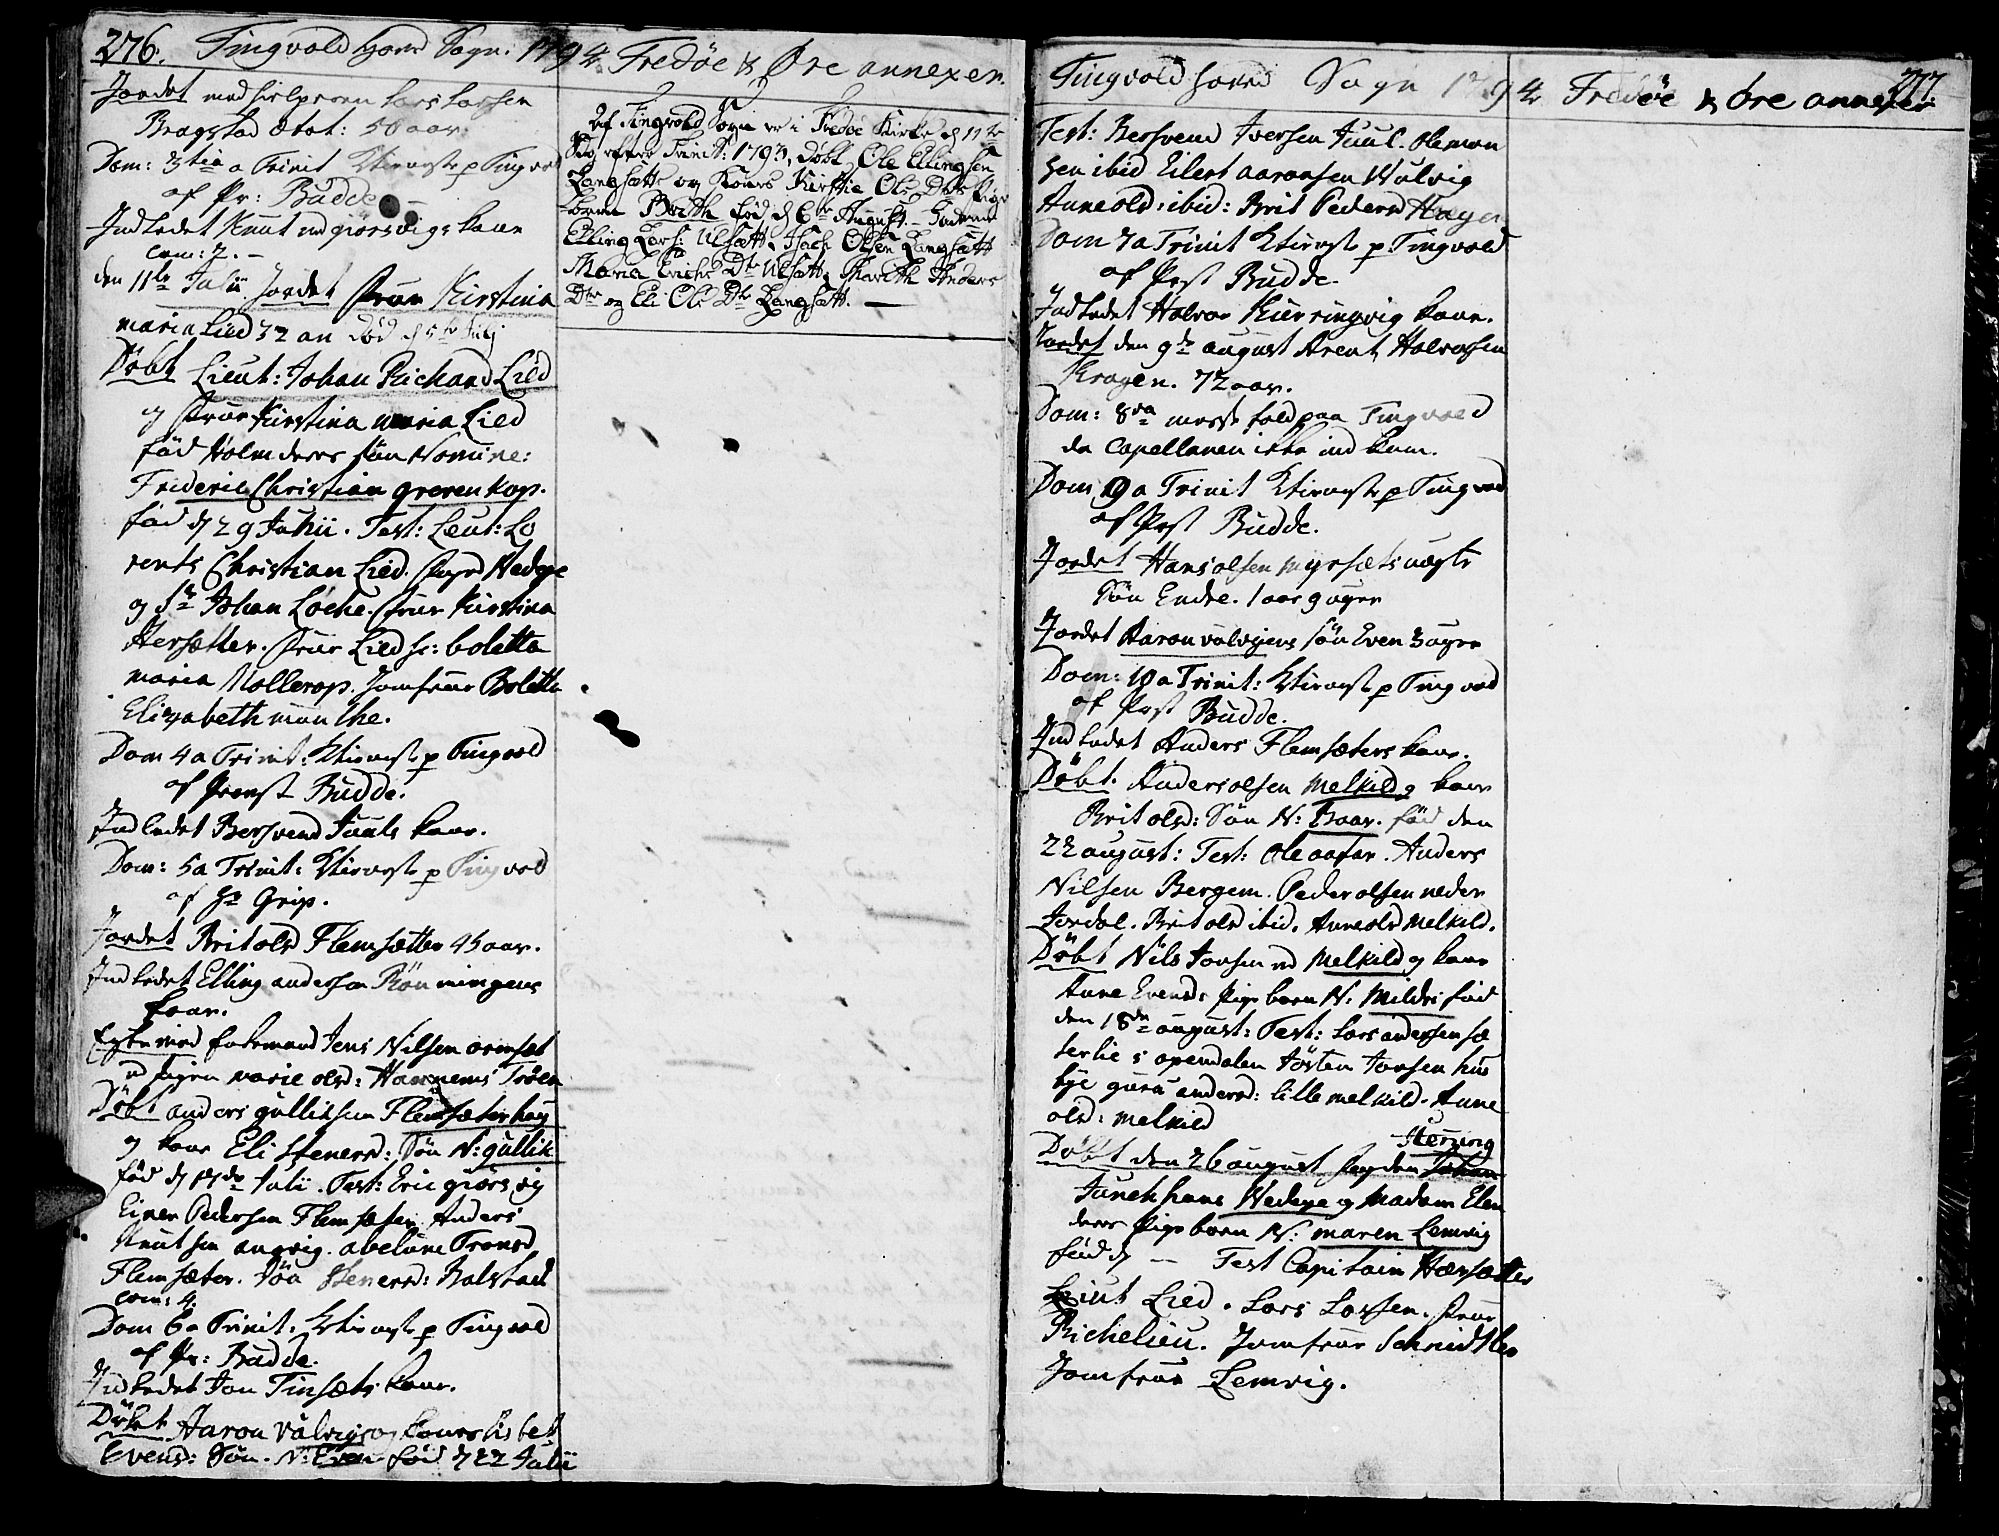 276. Tingvold Hoved Sogn. 1794. Fredøe & Øre annexer.
Jordet med hielperen Lars Larsen
Bragstad ætat: 50 aar.
Dom: 3tia a Trinit Ktieneste p Tingvold
af Pr: Budde
Indledet Knut kone
com: 7. —
den 11te Julii Jordet Frue Kirstina
maria Lied 32 an død d 5te Julij
Døbt Lieut: Johan Richard Lied
og Frue Kirstina maria Lied
fød Holm deres søn Nomine:
Frideric Christian grevenkop.
fød d 29 Junii. Test: Leut: Lo
rents Christian Lied. Hedege
og Sr Johan Løche. Frue Kirstina
Hersætter. Frue Lied bolette
maria Mollerop. Jomfrue Bolette
Elizabeth munthe.
Dom 4 a Trinit: Ktieneste p Tingvold
af Provst Budde.
Indledet Bersvend Juuls kone.
Dom: 5 a Trinit: Ktieneste p Tingvold
af Hr Grip.
Jordet Brit olsd Flemsætter 45 aar.
Indledet Elling anderssen Rønningens
kone.
Egteviet Enkemand Jens Nilsen
og pigen marie olsd: Hannems Trøen
Døbt anders gulliksen Flemsæterhoug
og kone Eli Stenersd: Søn N: gullik
fød d 17de Julii. Test: Eric giørsvig
Einer Pedersen Flemsæter Anders
Knutsen angvig. abelune Tronsd
Flemsæter. Stenersd: Bolstad
com: 4.
Dom 6 a Trinit: Ktieneste p Tingvold
af Pr: Budde.
Indledet Jon Tinsæts kone.
Døbt Aaron Vulvig og kone Lisbet
Evensd: Søn. N: Even fød d 22 Julii
Af Tingvold Sogn er i Fredøe Kirke d 11te
Søn. efter Trinit: 1793, døbt Ole Ellingsen
Langsætt og Kones Kirstie Ols Dtrs Pige
barn Brith fød d 6te August. Fadder
Elling Lars: Ulsætt, Isach Olsen Langsætt
Maria Erichs Dtr Ulsætt, Marith Anders
Dtr og Eli Ols Dtr Langsætt. —
Tingvold hoved Sogn 1794 Fredøe & Øre annexer 277
Test: Bersvend Iversen Juul. Ole mon
sen ibid Eilert aaronsen Wulvig
Anne olsd: ibid: Brit Pedersd Hagen
Dom 7 a Trinit Ktieneste p. Tingvold
af Prst Budde.
Indledet Halvor Kierringvig kone.
Jordet den 9de august Arent Halvorsen
Kragen. 72 aar.
Dom: 8va messefald paa Tingvold
da Capellanen ikke ind kom.
Dom 9 a Trinit Ktieneste p Tingvold
af Prst Budde.
Jordet Hans olsen myrsæts uægte
Søn Endre. 1 aar 9 uger
Jordet Aaron vulvigens søn Even 3 uger
Dom: 10 a Trinit: Ktieneste p Tingvold
af Prst Budde.
Indledet Anders Flemsæters kone.
Døbt. Anders olsen Melkild og kone
Brit olsd: Søn N: Baar. fød den
22 august: Test: Ole aasen. Anders
Nilsen Bergem. Peder olsen neder
Jordal. Brit olsd ibid. Anne olsd Melkild.
Døbt Nils Jonsen Melkild og kone
Anne Evensd: Pige barn N: Mildri fød
den 18de august: Test: Lars andersen sæ
terlie i opendalen Jøsten Jonsen hus
bye guru andersd: lille melkild. Anne
olsd: melkild
Herzing
Døbt den 26 august Fogden Johan
Junekhans Hedege og Madam Elen
deres Pige barn N: maren Lemvig
fød d — Test Capitain Hærsætter
Leiut Lied. Lars Larsen. Frue
Richelieu. Jomfrue Schmidtler
Jomfrue Lemvig.